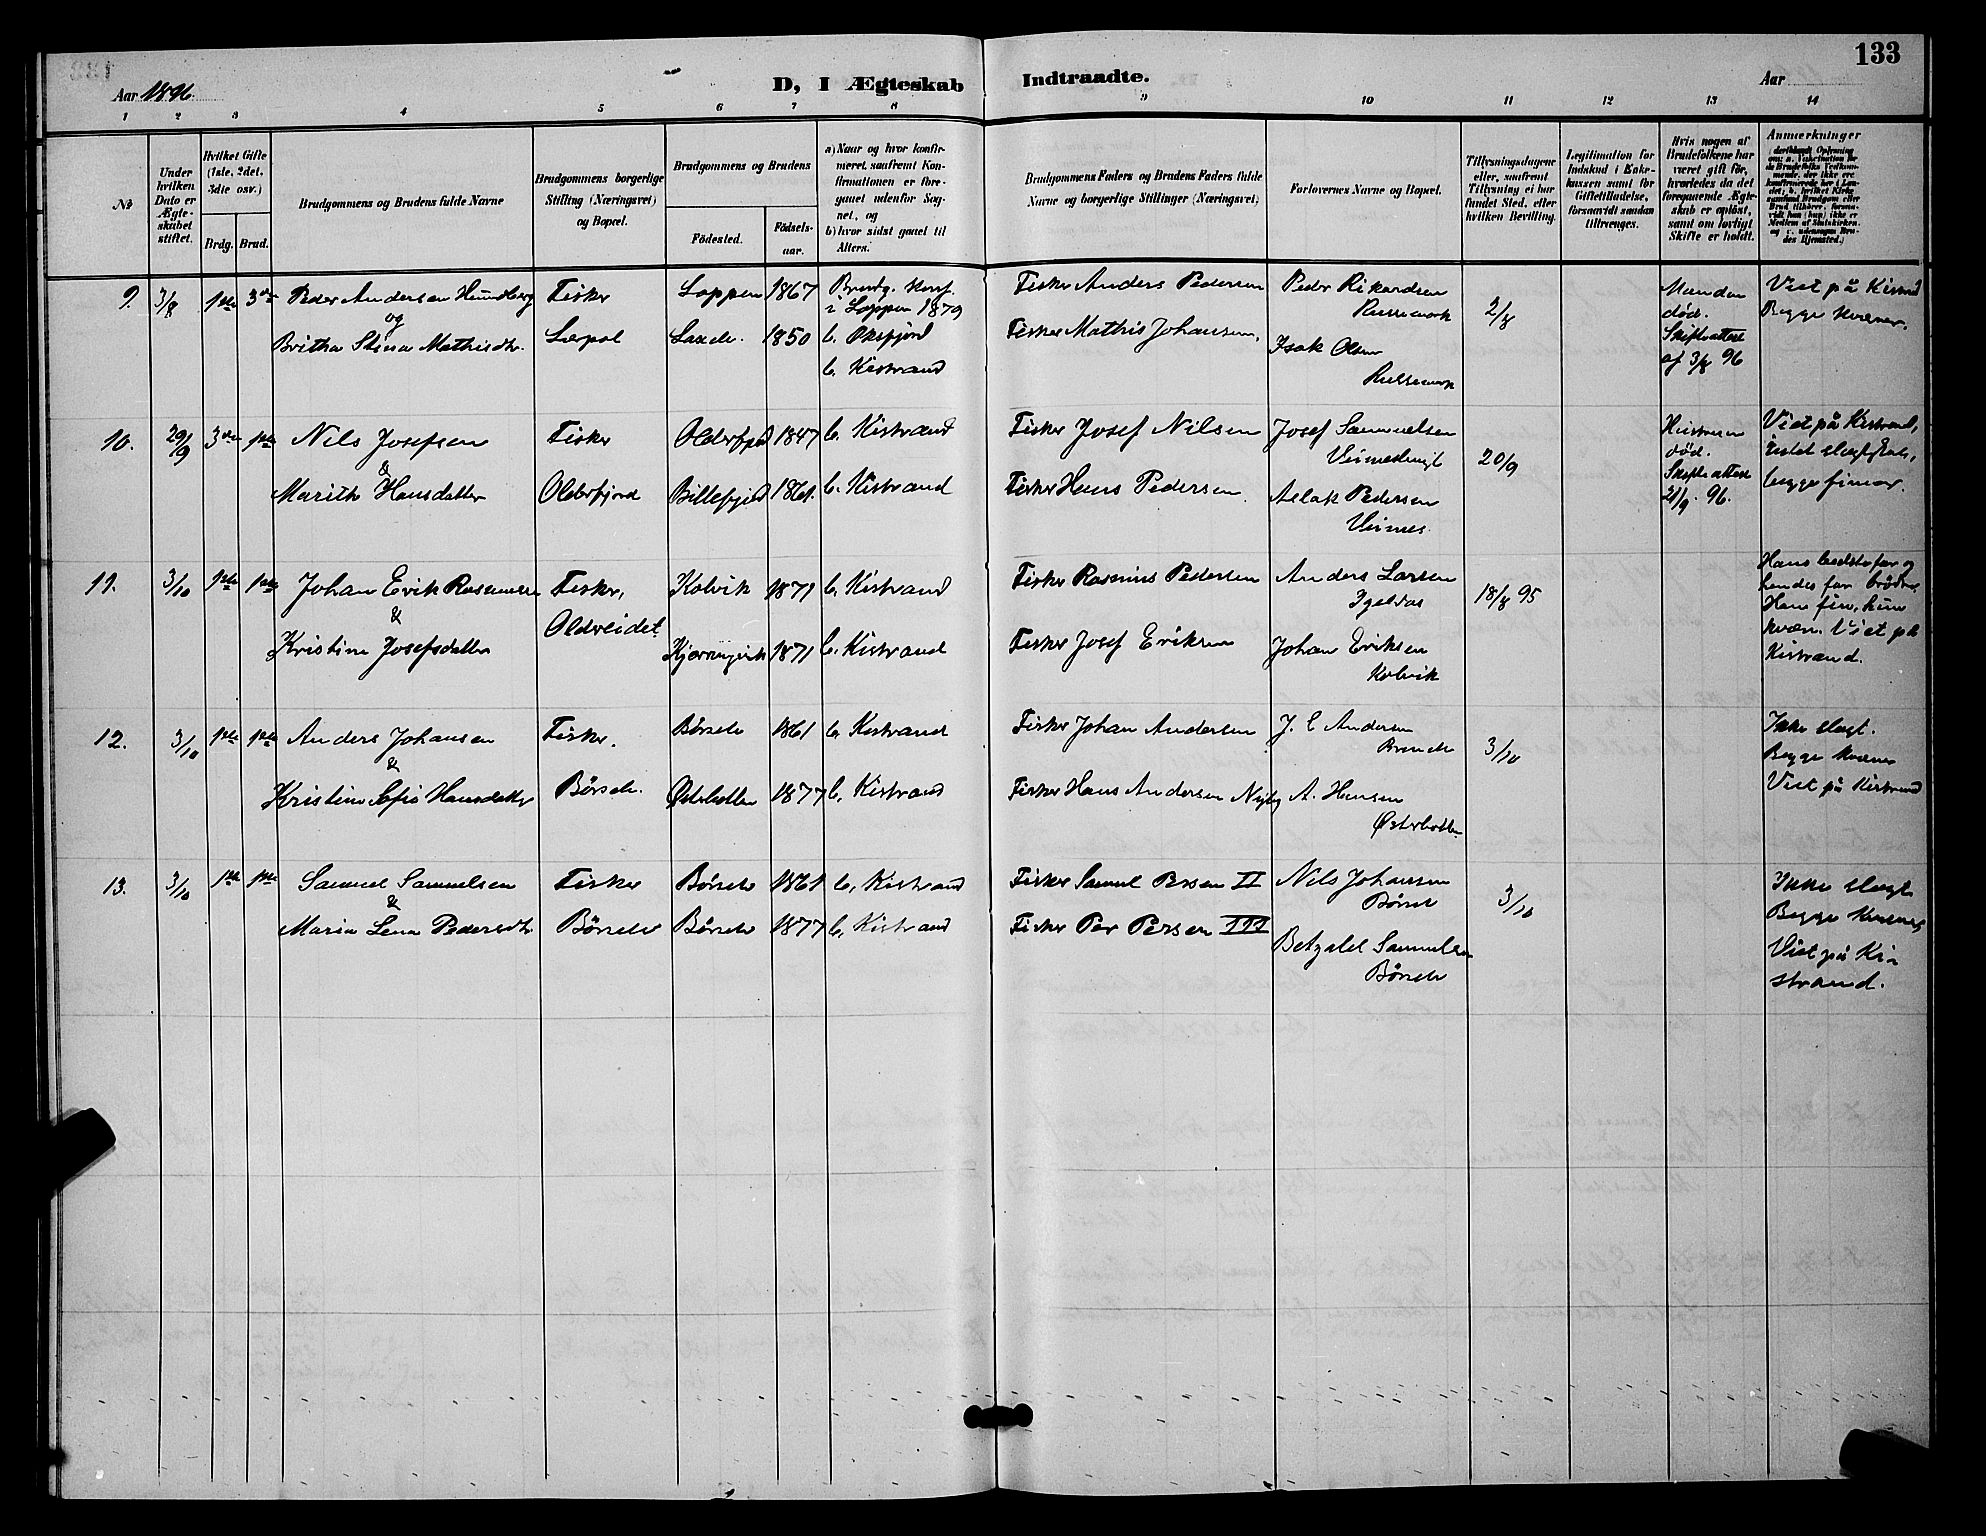 133
D, I Ægteskab Indtraadte.
Aar 1896.
Aar
1 2 3 4 5 6 7 8 9 10 11 12 13 14
№
Under hvilken Dato er Ægteskabet stiftet.
Hvilket Gifte (1ste, 2det, 3die osv.)
Brdg. Brud.
Brudgommens og Brudens fulde Navne
Brudgommens borgerlige Stilling (Næringsvei) og Bopæl.
Brudgommens og Brudens
Fødested.
Fødselsaar.
a) Naar og hvor konfirmeret, saafremt Konfirmationen er foregaaet udenfor Sognet, og
b) hvor sidst gaaet til Alters.
Brudgommens Faders og Brudens Faders fulde Navne og borgerlige Stillinger (Næringsvei)
Forlovernes Navne og Bopæl.
Tillysningsdagene eller, saafremt Tillysning ei har fundet Sted, efter hvilken Bevilling.
Legitimation for Indskud i Enkekassen samt for Giftetilladelse, forsaavidt saadan tiltrænges.
Hvis nogen af Brudefolkene har været gift før, hvorledes da det foregaaende Ægteskab er opløst, samt om lovligt Skifte er holdt.
Anmerkninger
9. 3/8 1ste 3die Peder Andersen Hundberg
og
Britha Stina Mathisdtr.
Fisker
Loppen 1867
Lerpol
1850
Brudg. konf.
i Loppen 1879
b. Oksfjord
b. Kistrand
Fisker Anders Pedersen
Fisker Mathis Johansen.
Peder Rikardsen
Isak Olsen
2/8
Manden
død.
Skifteattest
af 3/8 96
Viet på Kistrand
Begge kvæner.
10. 29/9 3die 1ste Nils Josefsen
&
Marith Hansdatter
Fisker
Olderfjord
Olderfjord 1847
Billefjord 1861.
b. Kistrand
b. Kistrand
Fisker Josef Nilsen
Fisker Hans Pedersen.
Josef Samuelsen
Aslak Pedersen
Veines.
20/9
Hustruen
død.
Skifteattest
21/9. 96.
Viet på Kistrand,
Intet slægtskab,
begge finner.
11. 3/10 1ste 1ste Johan Erik Rasmussen
&
Kristine Josefsdatter
Fisker,
Oldereidet
Kolvik 1871
1871
b. Kistrand
b. Kistrand
Fisker Rasmus Pedersen
Fisker Josef Eriksen
Anders Larsen
Igeldas
Johan Eriksen
Kolvik
18/8 95
Hans bedstefar og
hendes far brødre.
Han fin, hun
kvæn. Viet på
Kistrand.
12. 3/10 1ste 1ste Anders Johansen
&
Kristine Sofie Hansdatter
Fisker.
Børselv.
Børselv 1861
Østerbotten 1877
b. Kistrand
b. Kistrand
Fisker Johan Andersen
Fisker Hans Andersen Nyby
J. E Andersen
A. Hansen
Østerbotten
3/10
Ikke slægt.
Begge kvæner
Viet på Kistrand
13. 3/10 1ste 1ste Samuel Samuelsen
&
Maria Lena Pedersdtr
Fisker
Børselv
Børselv 1861
Børselv 1877
b. Kistrand
b. Kistrand
Fisker Samuel Persen II
Fisker Per Persen III
Nils Johansen
Børselv
Betzalel Samuelsen
Børselv
3/10
Ikke slægt
Begge kvæner
Viet på Ki-
strand.